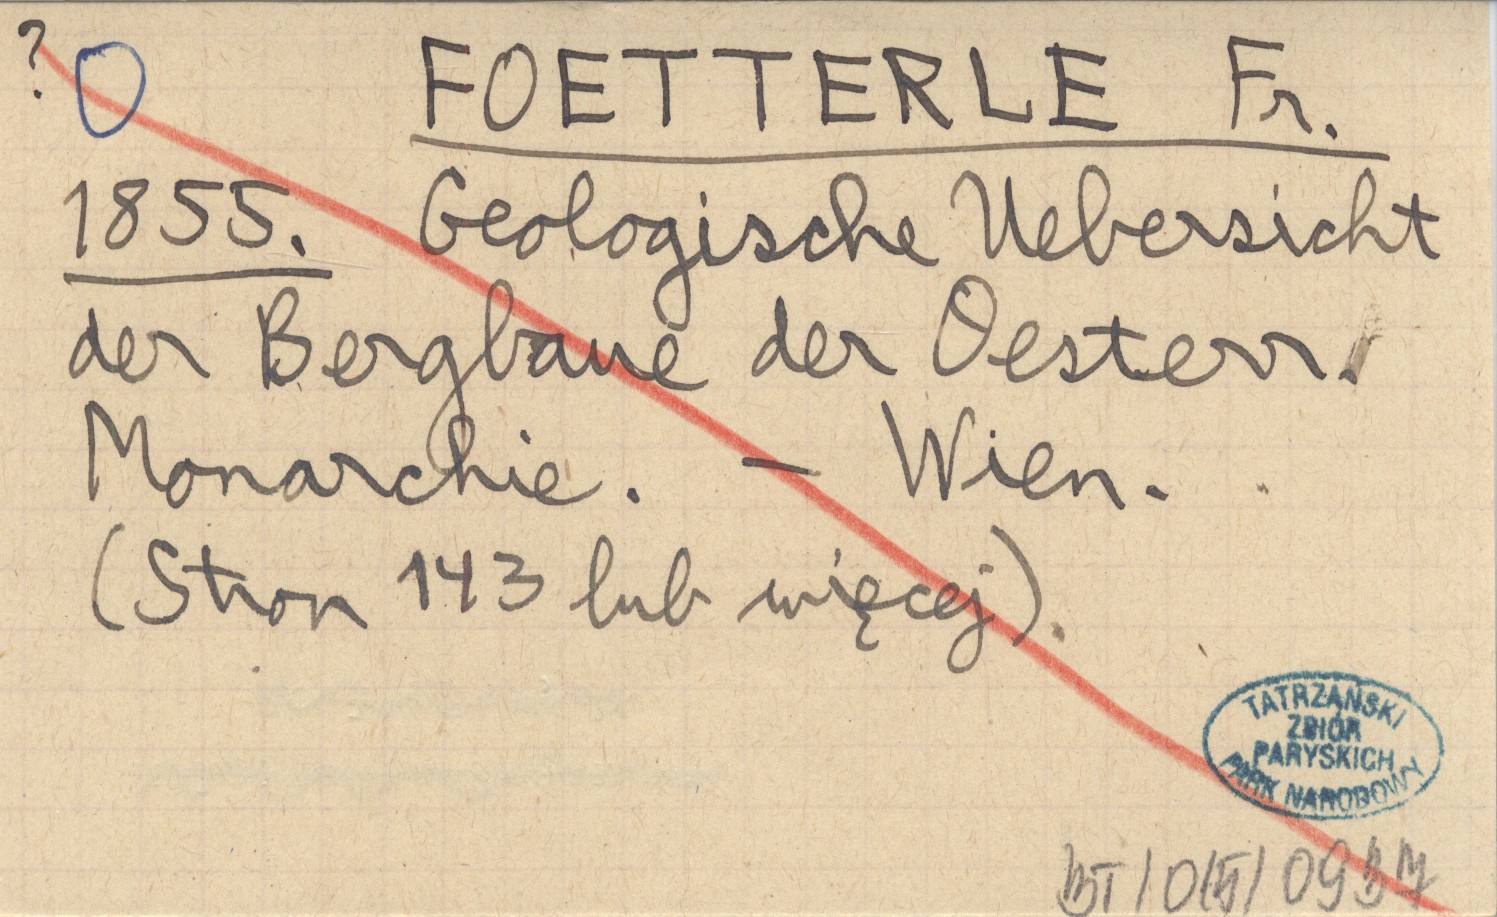 ? O FOETTERLE Fr.
1855. Geologische Uebersicht
der Bergbaue der Oesterr.
Monarchie. – Wien.
(Stron 143 lub więcej).
TATRZAŃSKI
ZBIÓR
PARYSKICH
PARK NARODOWY